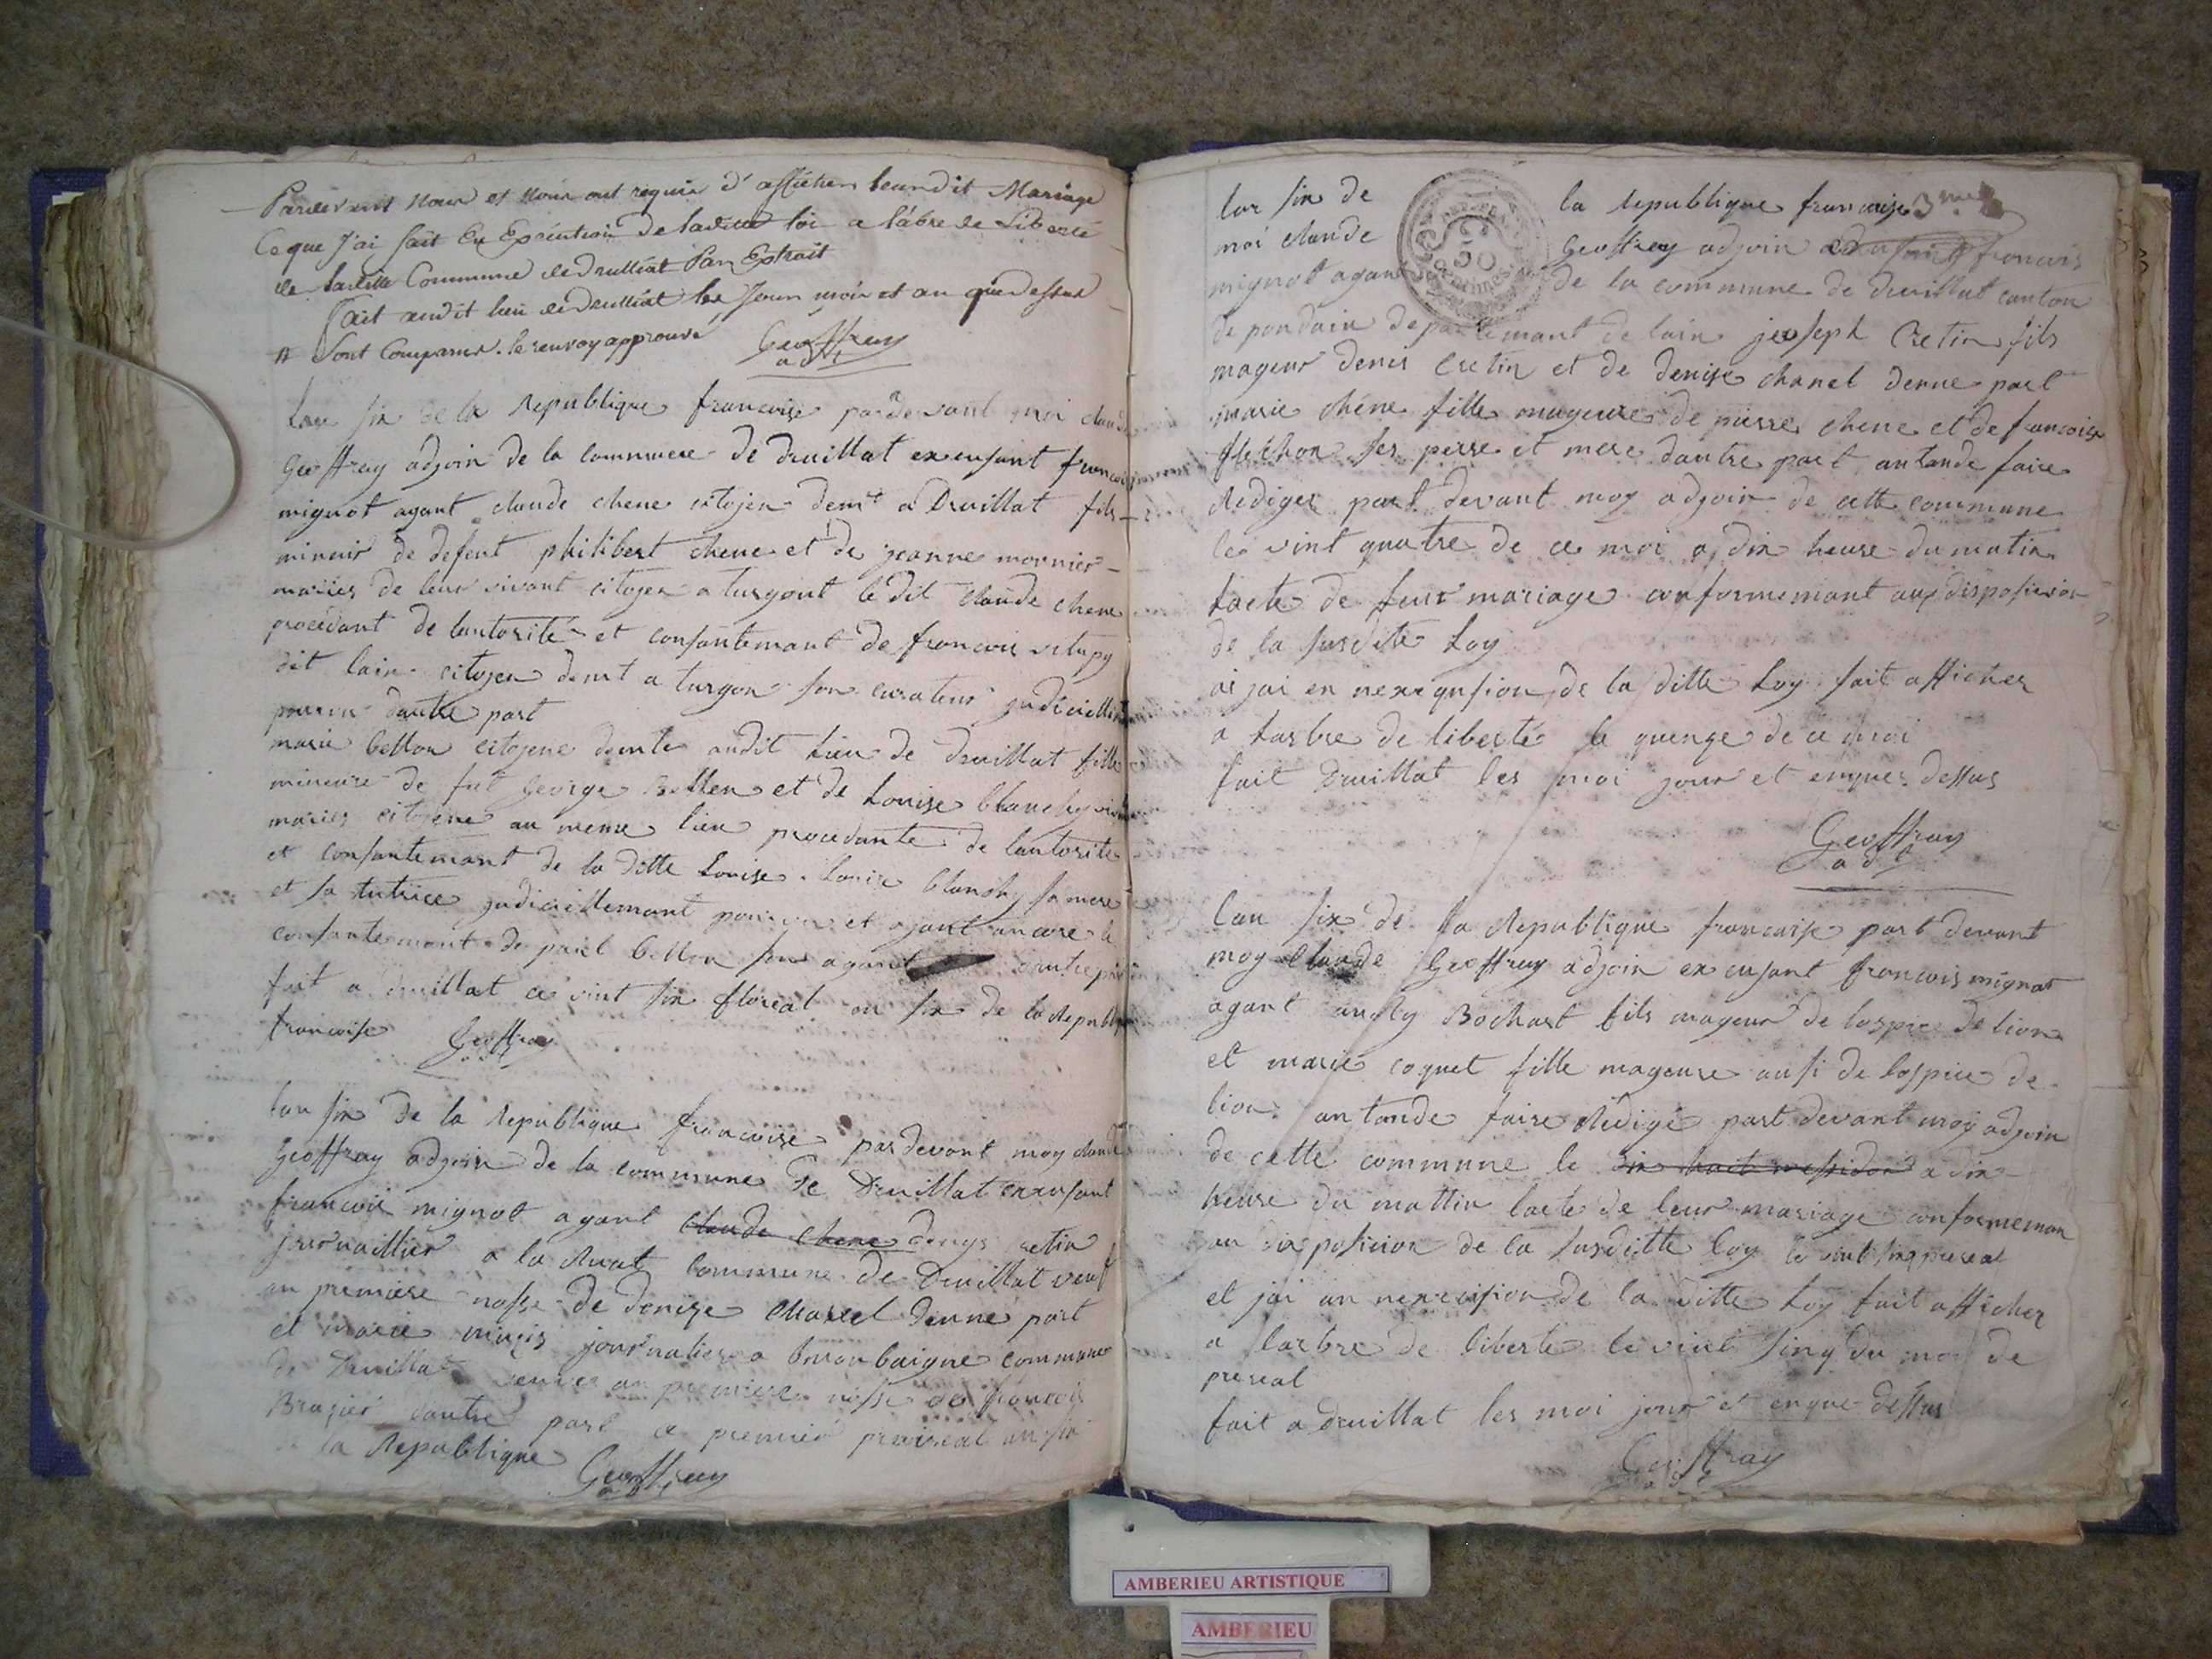 Pardevant nous et nous ont requis d'afficher leurdit Mariage
Ce que J'ai fait En Execution de laditte loi a l'abre de Liberté
de laditte Commune de druilliat Par Extrait
fait audit lieu de druilliat les Jour mois et an que dessus
sont Comparus. le renvoy approuvé Geoffray
adjt
lan six de la Republique francoise pardevant moi claude
Geoffray adjoin de la commune de druillat
mignot agant claude chene citojen demt a Druillat fils
mineur de defent philibert chene et de jeanne mornier
mariés de leur vivant citojen a turgont le dit claude chene
procédant de lautorité et consantemant de francois
dit lain citojen demt a turgon son curateur
pourvu dautre part
marie bellon citojene demte audit lieu de druillat fille
mineure de fut George bellon et de Louise blanchy
mariés citojene au meme lieu procedante de lautorite
et consantemant de la ditte Louise Louise blanchy sa mere
et sa tutrice judiciellemant pourvue et ajant ancore le
consantemant de part bellon agant dautre
fait a druillat ce vint six floreal an six de la Republ
francoise Geoffray
adjt
lan six de la Republique francoise pardevant moy claude
Geoffray adjoin de la commune de Druillat
francois mignot agant claude chene denys cretin
journaillier a la Ruat commune de Druillat veuf
an premiere nosse de denise Chanel denne part
et marie journaliere a commune
de druillat veuve an premiere nosse de francois
Brazier dautre part ce premier prerireal an six
la Republique
Geoffray
adjt
lan six de la Republique francoise 3me
moi claude Geoffray adjoin francois
mignot agant de la commune de druillat canton
de pondain departemant de lain joseph Cretin fils
mageur denis Cretin et de denise chanel denne part
marie chêne fille mageure de pierre chene et de francoise
flechon ses perre et mere dautre part antande faire
Rediger part devant moy adjoin de cette commune
les vint quatre de ce moi a dix heure du matin
Lacte de leur mariage conformemant aux disposision
de la susditte Loy
ai jai en nexequsion de la ditte Loy fait afficher
a Larbre de liberté le quenze de ce moi
fait Druillat les moi jour et enque dessus
Geoffray
adjt
lan six de la Republique francoise part devant
moy Claude Geoffray adjoin francois mignot
agant Bochart fils mageur de lospice de lion
et marie coquet fille mageure ausi de lospice de
lion antande faire Rédigé part devant moy adjoin
de cette commune le dix huit messidor a dix
heure du mattin lacte de leur mariage conformeman
au disposision de la susditte loy le vint sinq prereal
et jai an nexecusion de la ditte Loy fait afficher
a larbre de liberte le vint sinq du moi de
prereal
fait a druillat les moi jour et enque dessus
Geoffray
adjt
AMBERIEU ARTISTIQUE
AMBERIEU